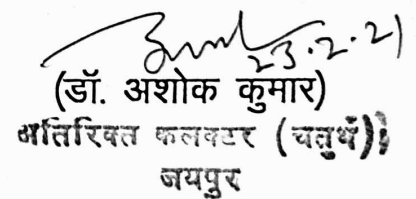 23.2.21
(डॉ. अशोक कुमार)
अतिरिक्त कलक्टर (चतुर्थ)
जयपुर